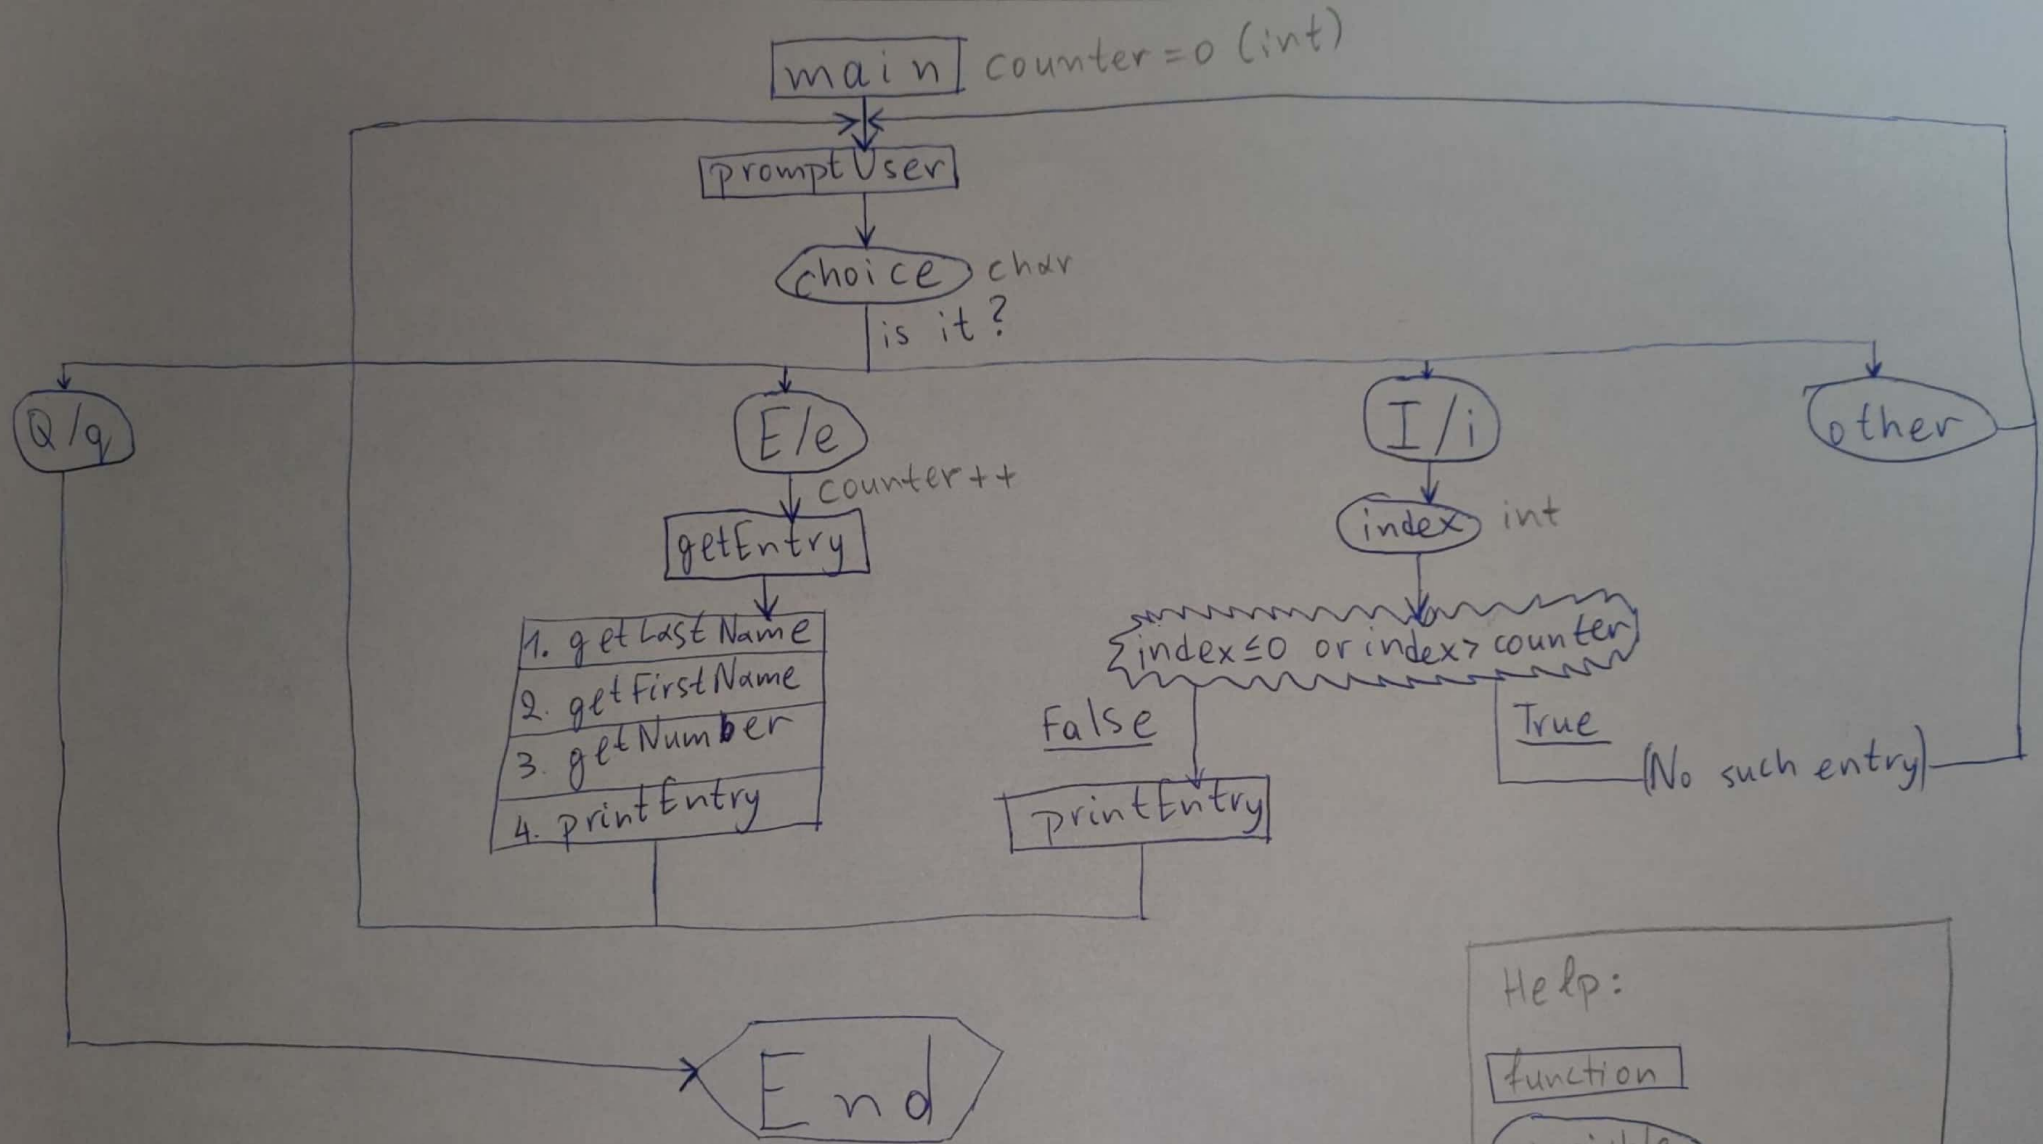 main counter=0 (int)
promptUser
choice char
is it?
Q/q
E/e
I/i
other
counter++
getEntry
index int
1. getLastName
2. getFirstName
3. getNumber
4. printEntry
index≤0 or index>counter
False
True
(No such entry)
printEntry
End
Help:
function